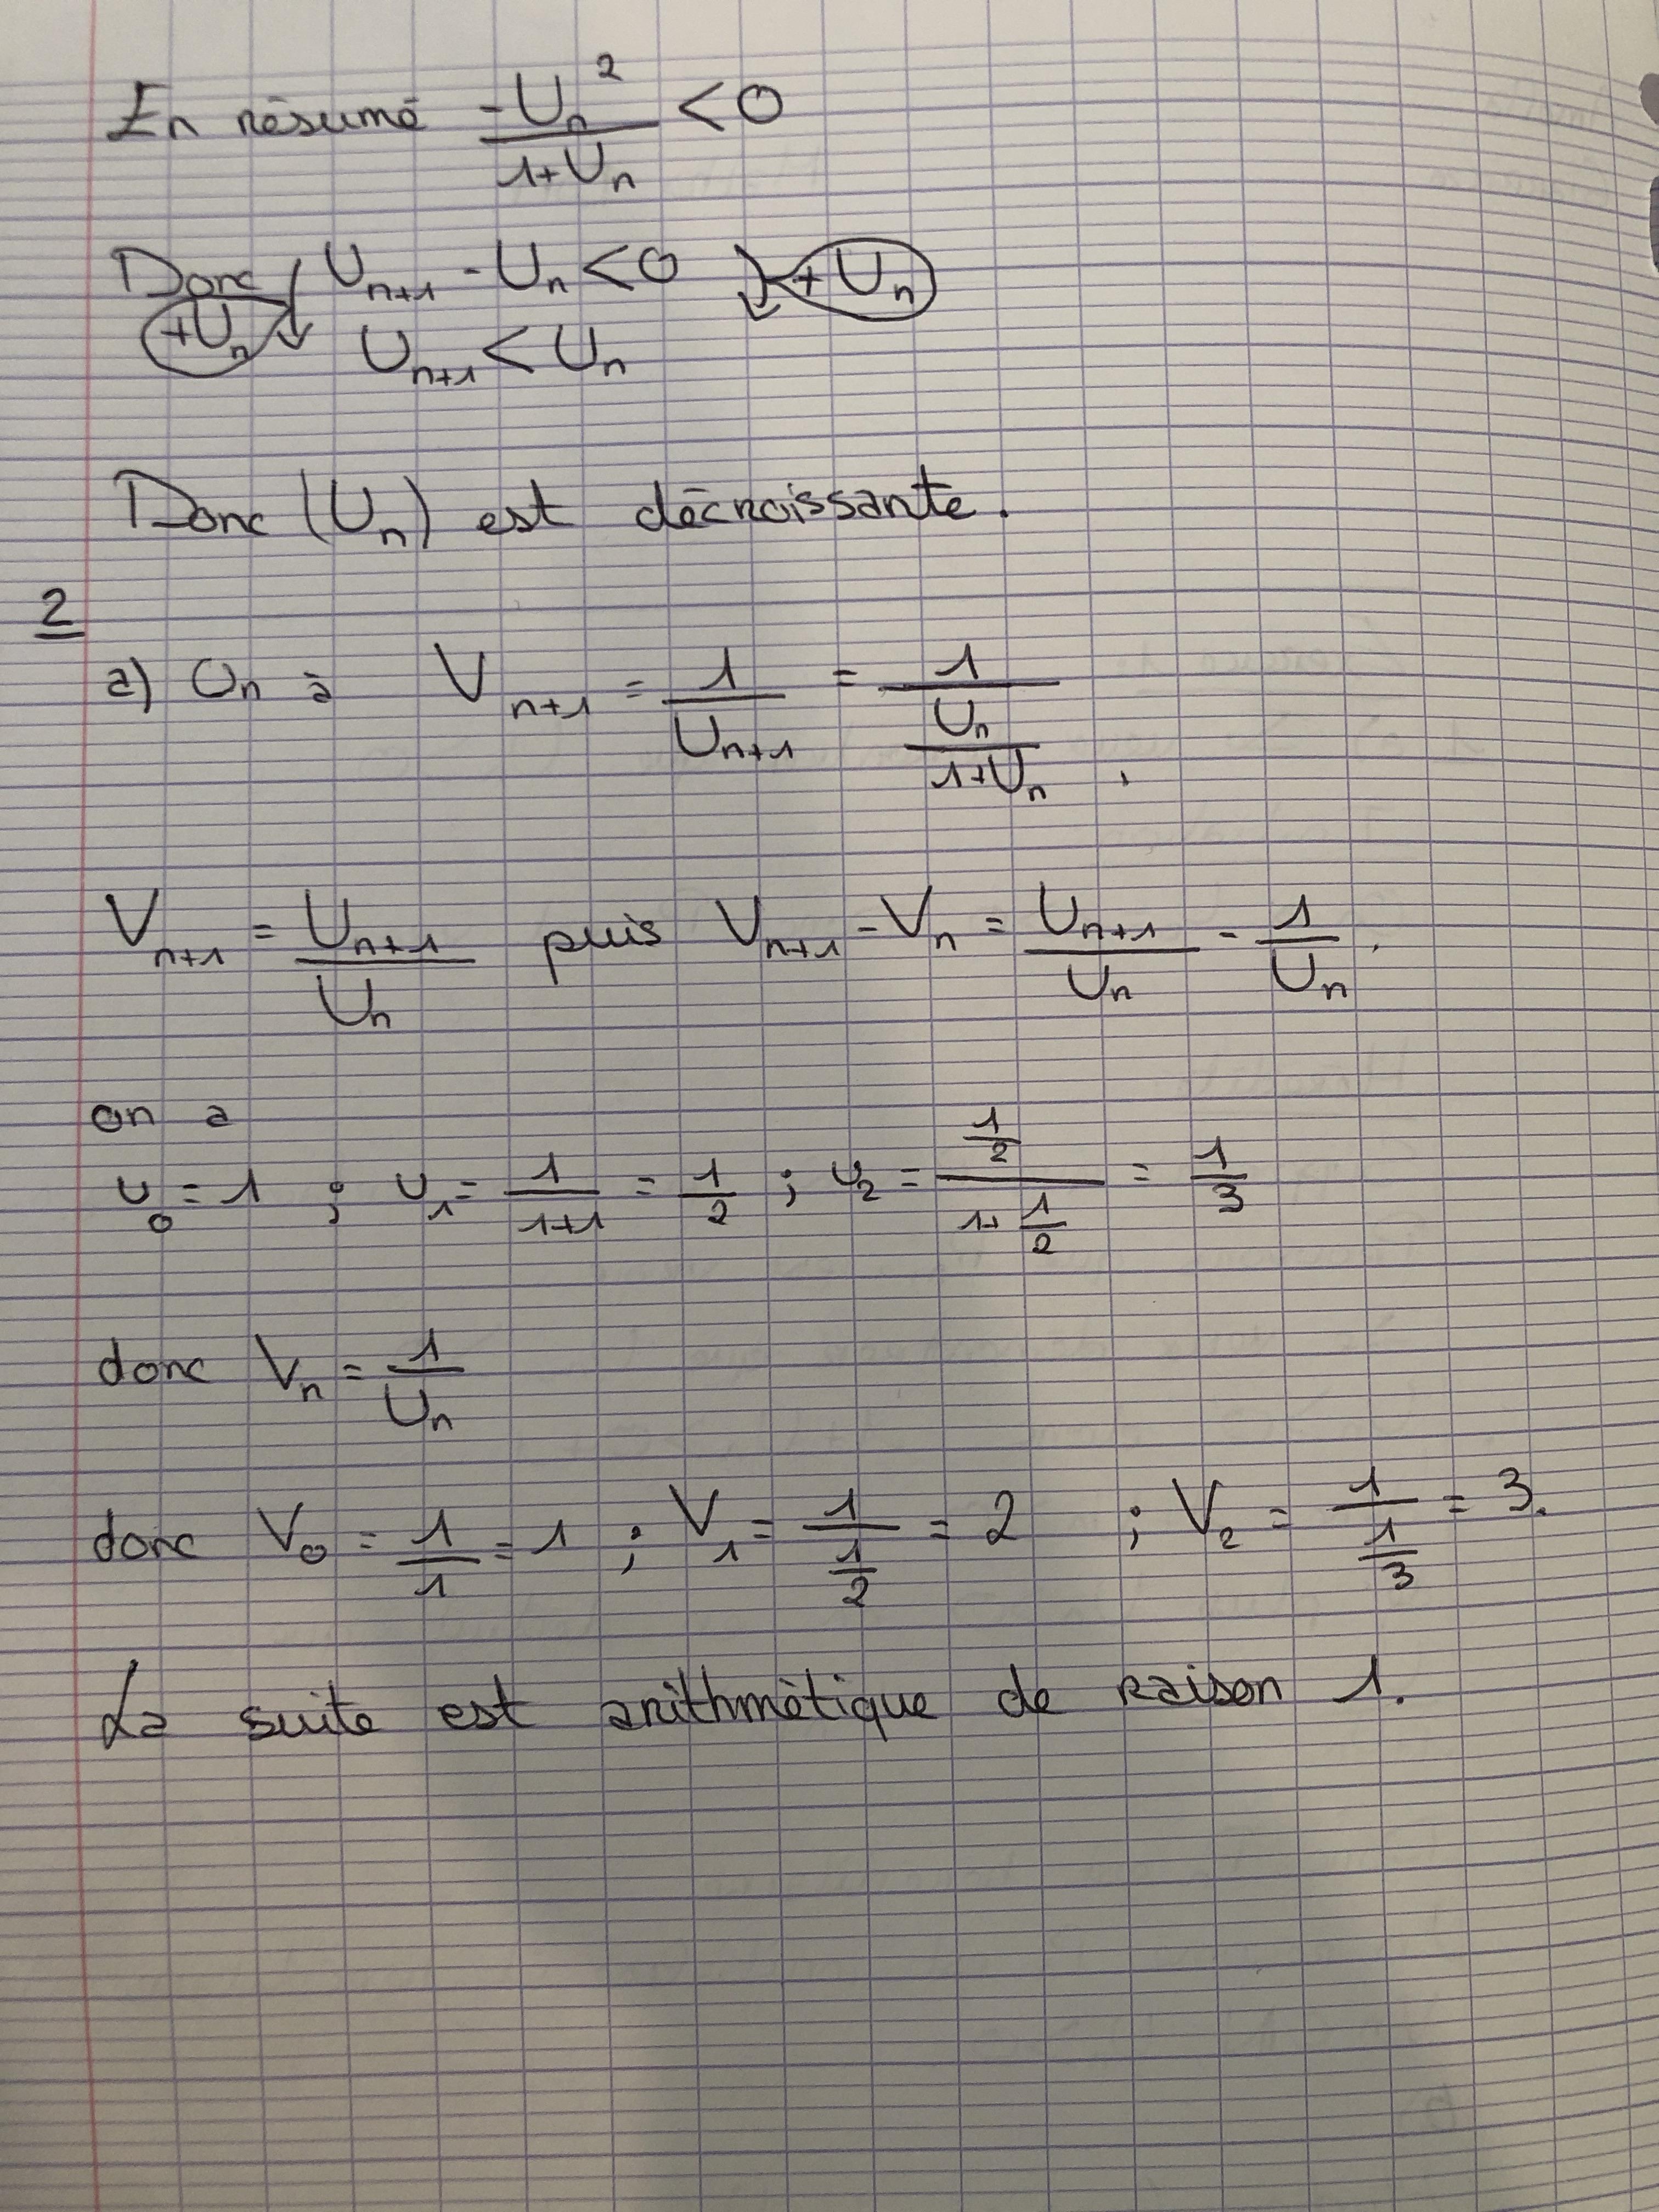 En résumé -Uₙ²/(1+Uₙ) < 0
Donc Uₙ₊₁ - Uₙ < 0 +Uₙ
+Uₙ Uₙ₊₁ < Uₙ
Donc (Uₙ) est décroissante.
2
a) On à Vₙ₊₁ = 1/Uₙ₊₁ = 1/(Uₙ/(1+Uₙ)) .
Vₙ₊₁ = Uₙ₊₁/Uₙ puis Vₙ₊₁ - Vₙ = Uₙ₊₁/Uₙ - 1/Uₙ .
on a
u₀ = 1 ; u₁ = 1/(1+1) = 1/2 ; u₂ = (1/2)/(1+1/2) = 1/3
donc Vₙ = 1/Uₙ
donc V₀ = 1/1 = 1 ; V₁ = 1/(1/2) = 2 ; V₂ = 1/(1/3) = 3.
La suite est arithmétique de raison 1.